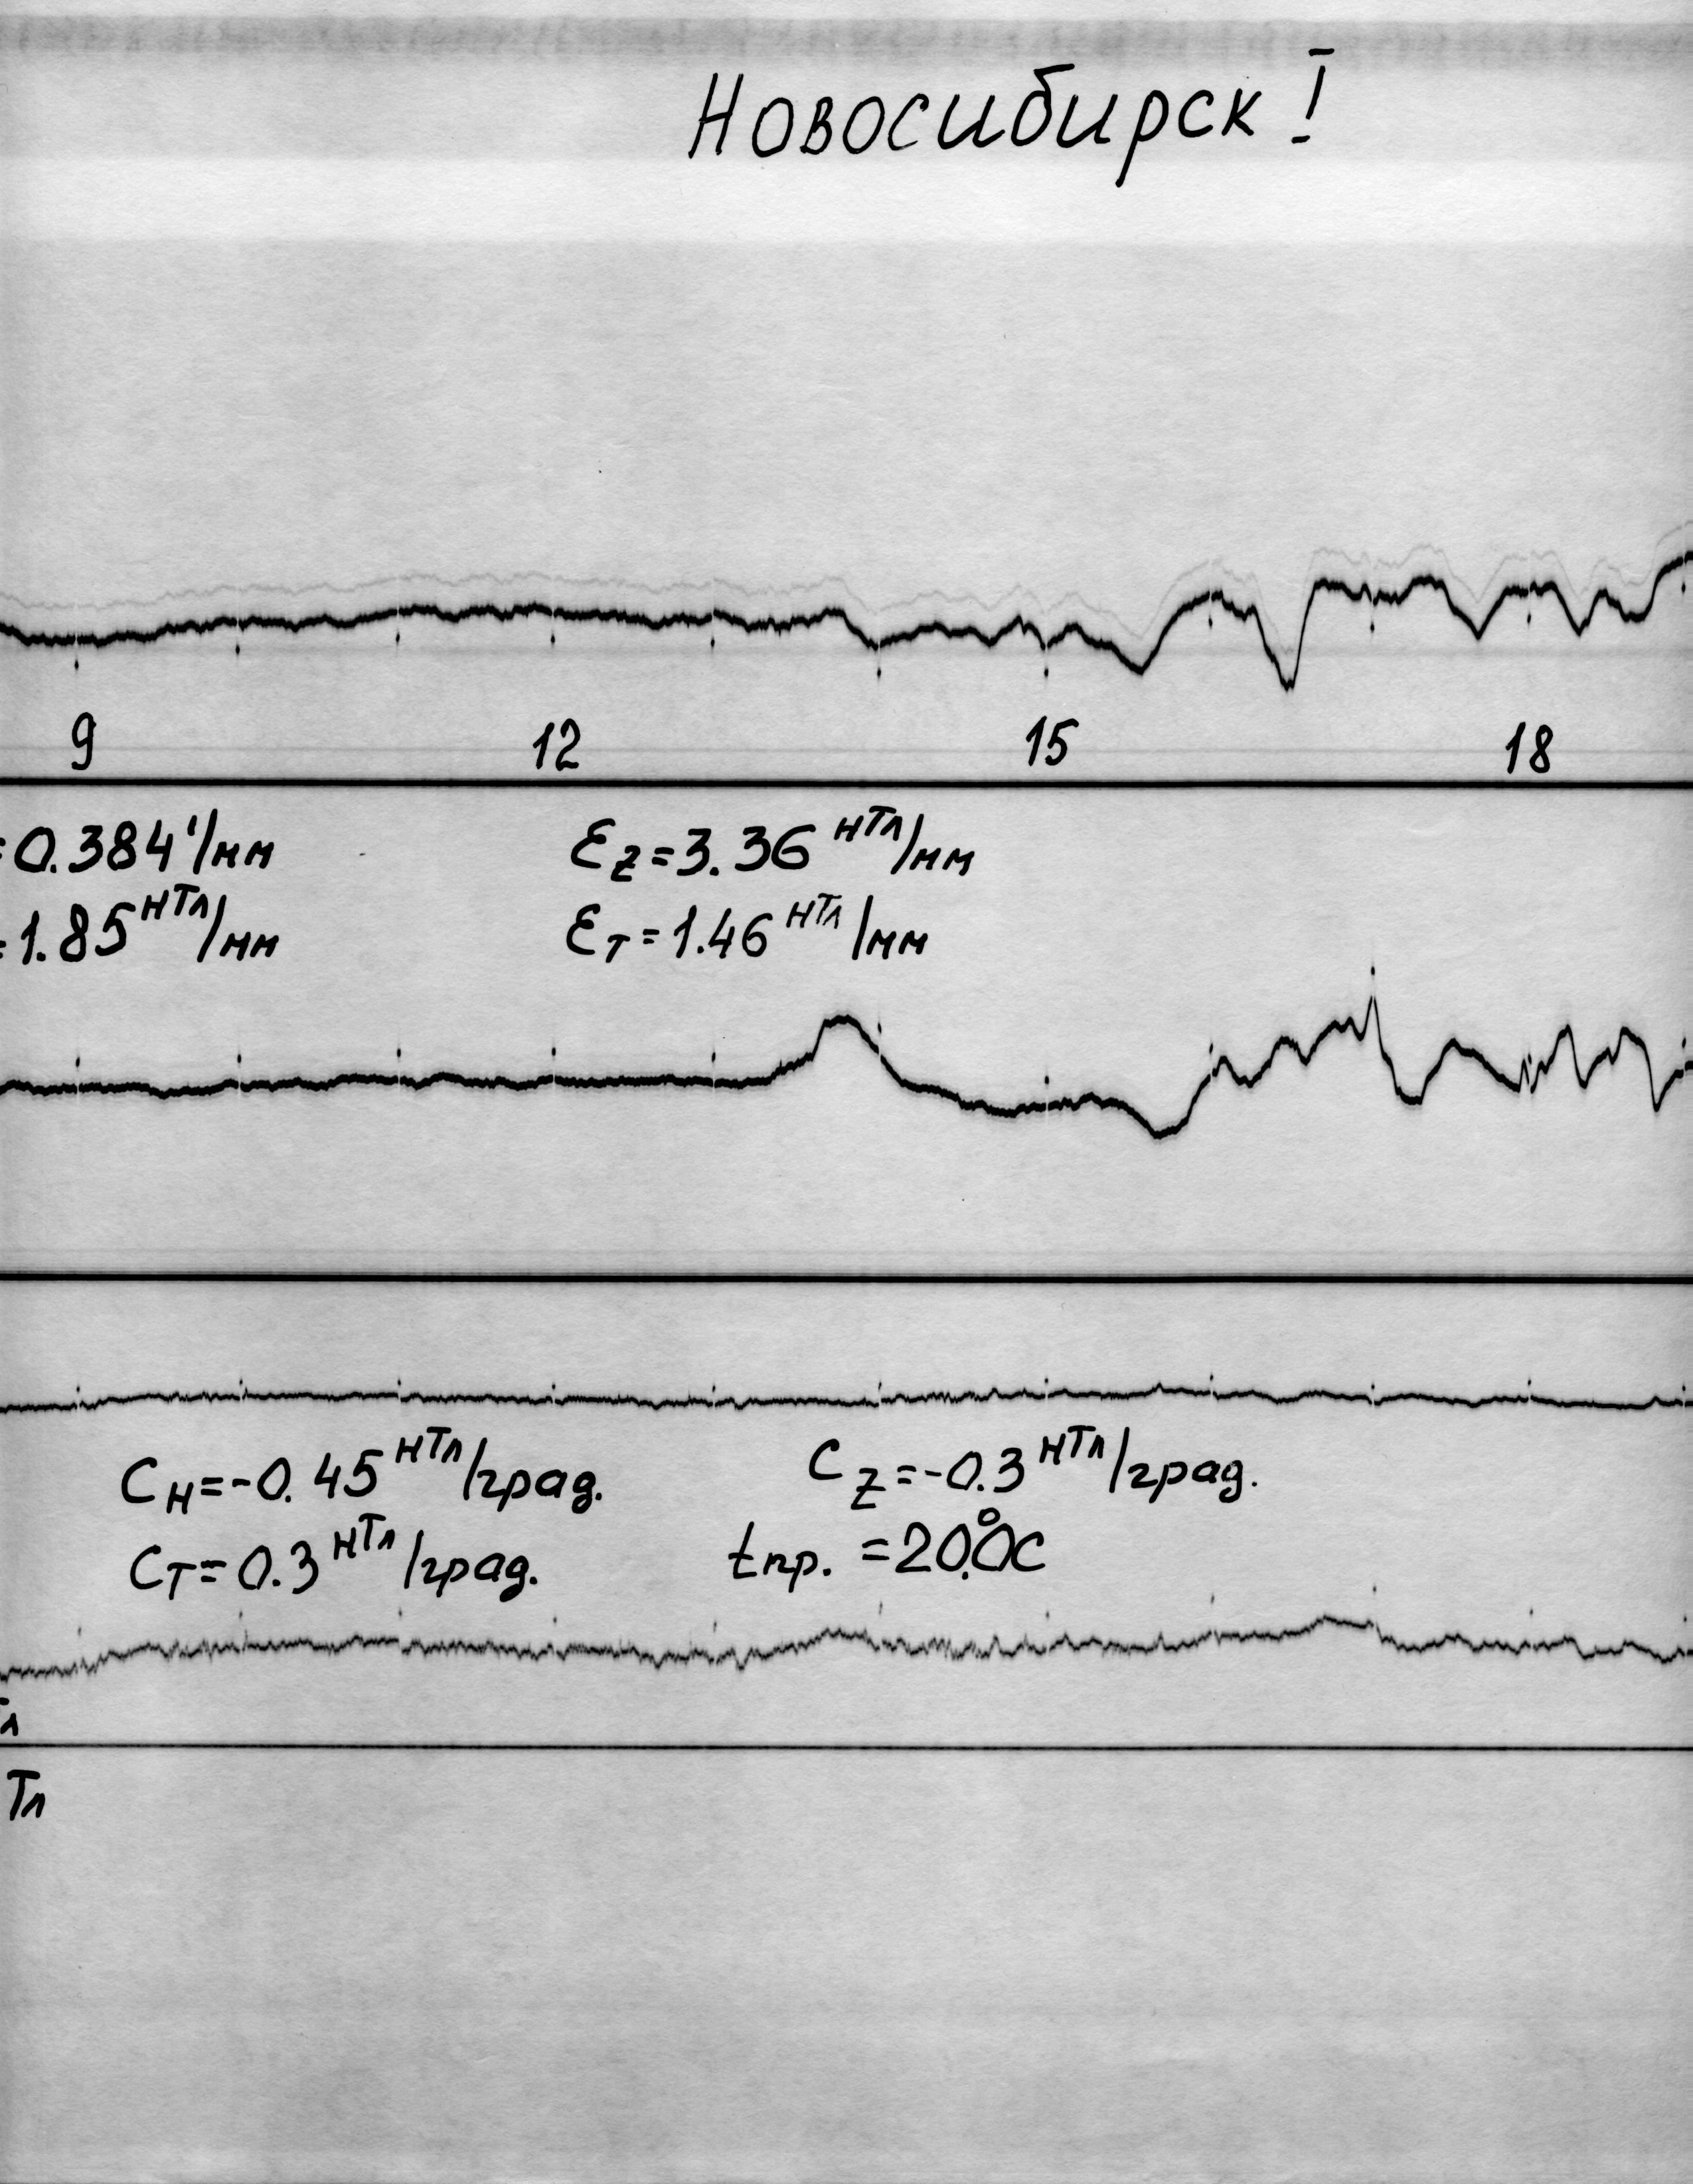 Новосибирск I
9 12 15 18
=0.384'/мм Ɛz=3.36 нТл/мм
=1.85 нТл/мм Ɛт=1.46 нТл/мм
Cн=-0.45 нТл/град. Cz=-0.3 нТл/град.
Cт=0.3 нТл/град. tпр. =20.0°C
Тл